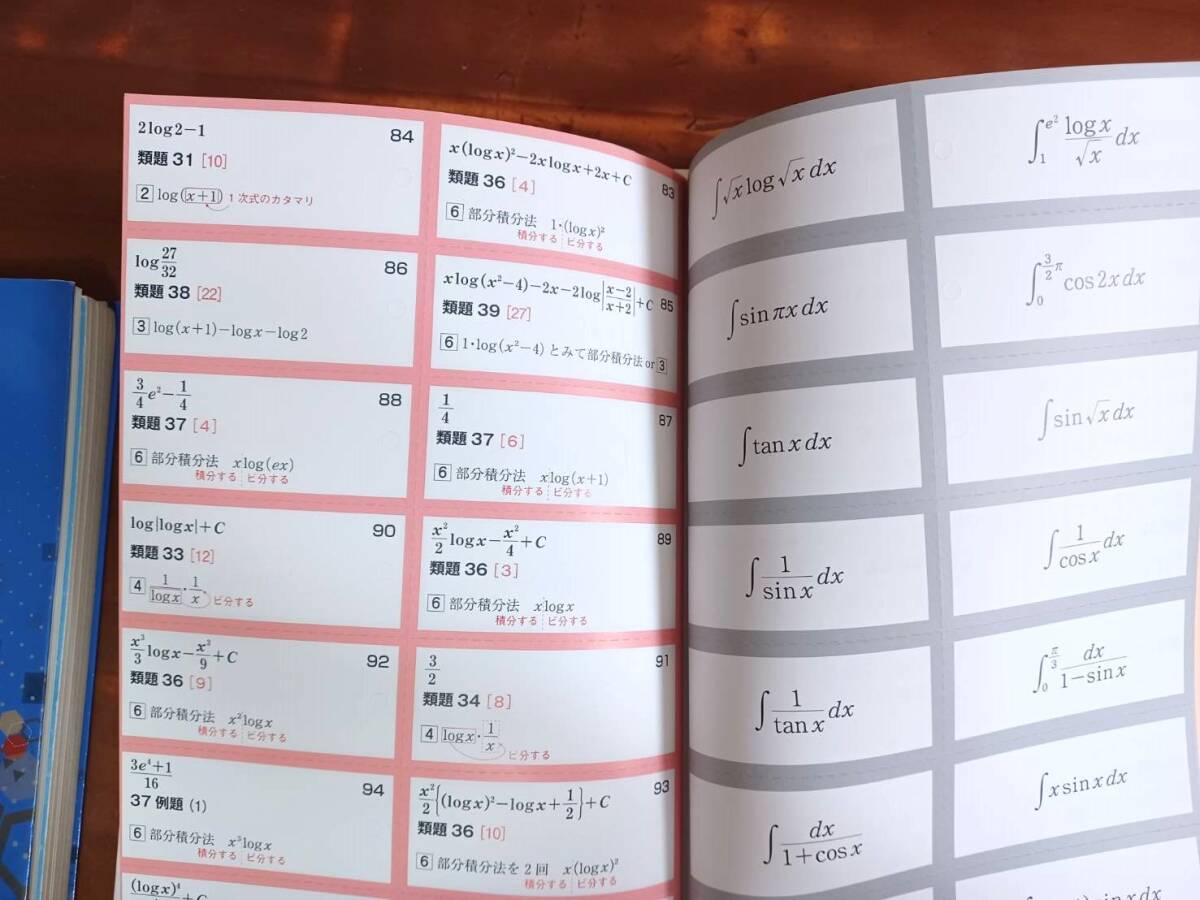 2log2−1 84
類題 31 [10]
2 log(x+1) 1 次式のカタマリ
x(logx)²−2xlogx+2x+C 83
類題 36 [4]
6 部分積分法 1·(logx)²
積分する ビ分する
log 27/32 86
類題 38 [22]
3 log(x+1)−logx−log2
xlog(x²−4)−2x−2log|x−2/x+2|+C 85
類題 39 [27]
6 1·log(x²−4) とみて部分積分法 or 3
3/4 e²−1/4 88
類題 37 [4]
6 部分積分法 xlog(ex)
積分する ビ分する
1/4 87
類題 37 [6]
6 部分積分法 xlog(x+1)
積分する ビ分する
log|logx|+C 90
類題 33 [12]
4 1/logx · 1/x ビ分する
x²/2 logx−x²/4+C 89
類題 36 [3]
6 部分積分法 xlogx
積分する ビ分する
x³/3 logx−x³/9+C 92
類題 36 [9]
6 部分積分法 x²logx
積分する ビ分する
3/2 91
類題 34 [8]
4 logx · 1/x ビ分する
3e⁴+1/16 94
37 例題 (1)
6 部分積分法 x³logx
積分する ビ分する
x²/2{(logx)²−logx+1/2}+C 93
類題 36 [10]
6 部分積分法を 2 回 x(logx)²
積分する ビ分する
(logx)⁴
+C
∫√x log√x dx
∫₁^e² logx/√x dx
∫sin πx dx
∫₀^3/2π cos2x dx
∫tan x dx
∫sin√x dx
∫1/sin x dx
∫1/cos x dx
∫1/tan x dx
∫₀^π/3 dx/1−sin x
∫dx/1+cos x
∫x sin x dx
sin x dx